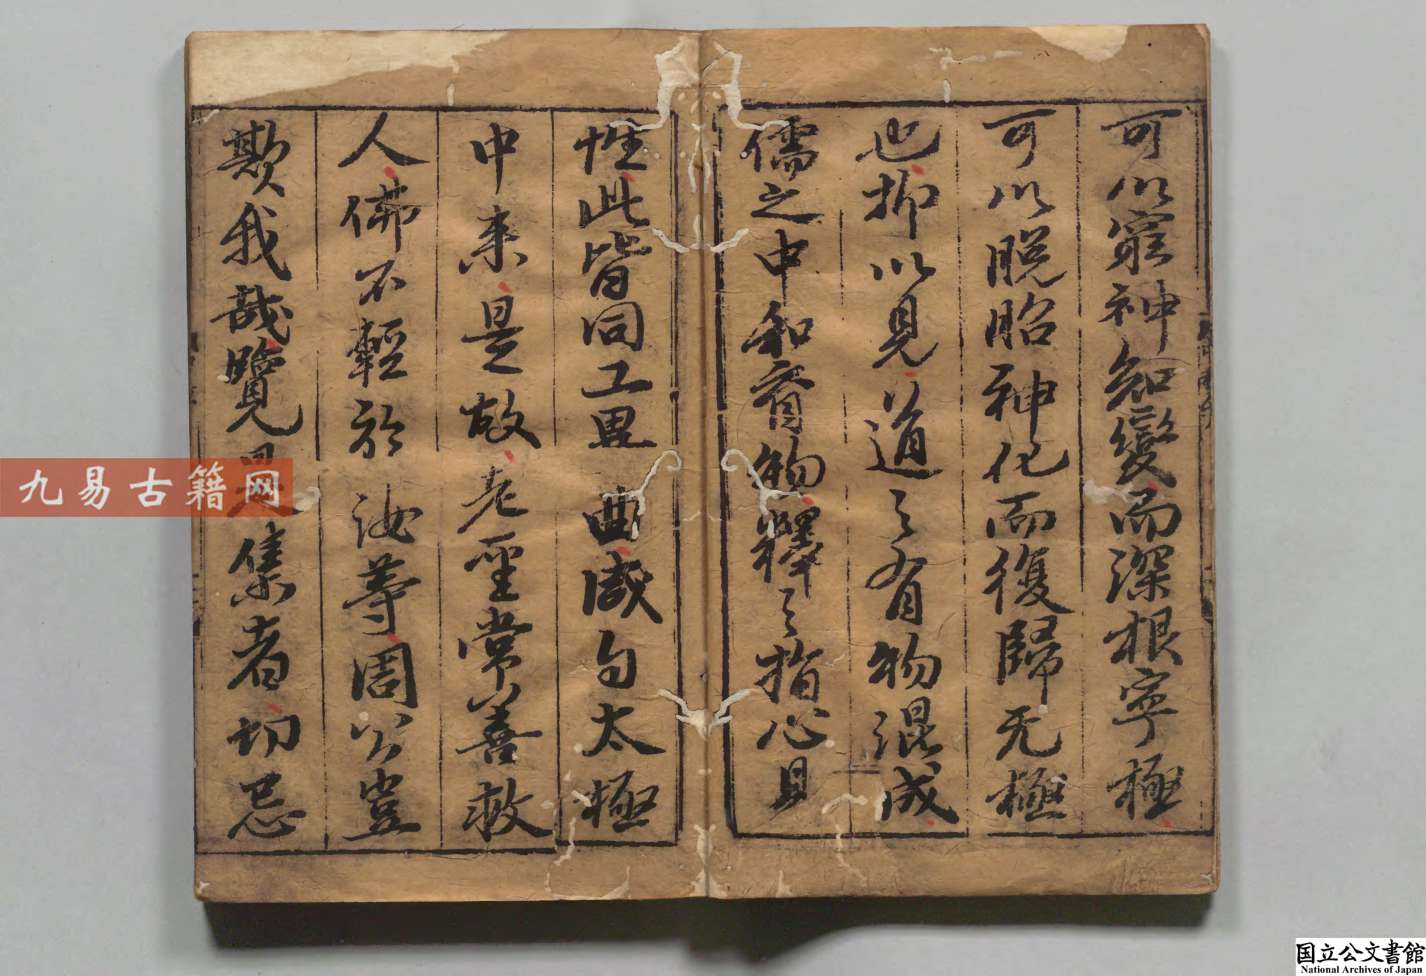 可以窮神知變而深根寧極
可以脱胎神化而復歸无極
也抑以見道之有物混成
儒之中和育物釋之指心見
性此皆同工異曲咸自太極
中来是故老聖常善救
人佛不輕於汝等周公豈
欺我哉覽是集者切忌
九易古籍网
国立公文書館
National Archives of Japan